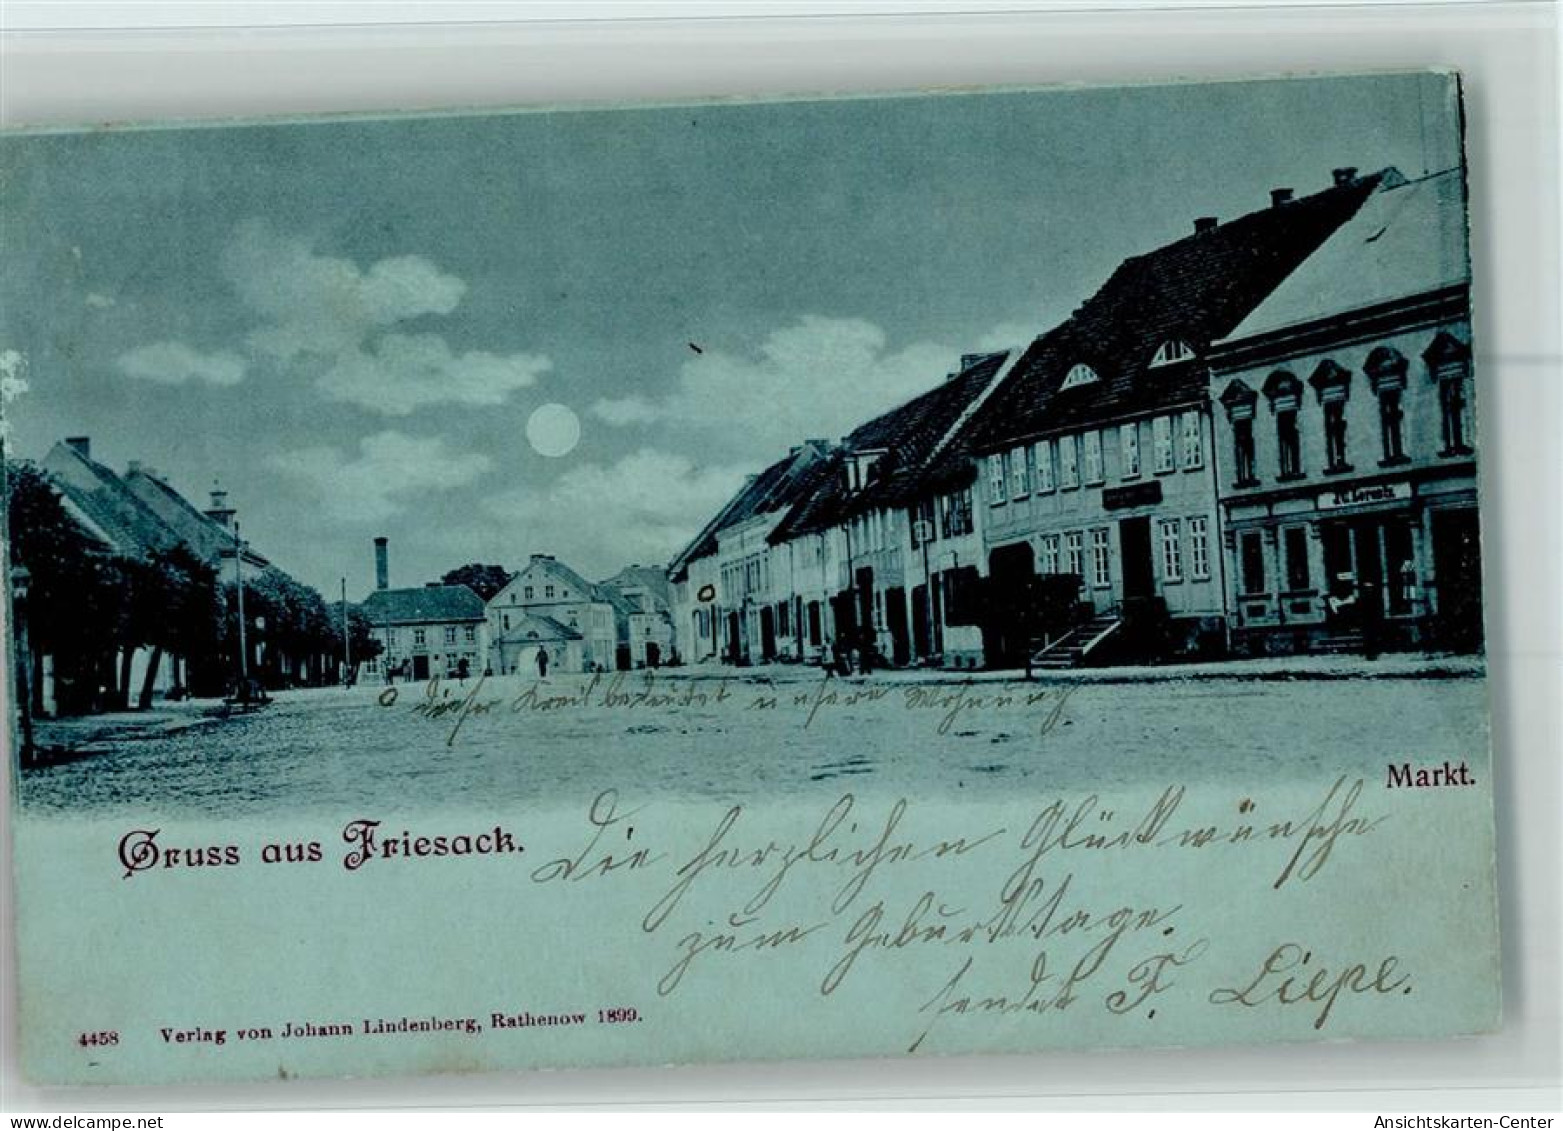 dieser Kreis bedeutet unsere Wohnung
Markt.
Gruss aus Friesack.
Die herzlichen Glückwünsche
zum Geburtstage.
sendet F. Liepe.
4458 Verlag von Johann Lindenberg, Rathenow 1899.
www.delcampe.net
Ansichtskarten-Center